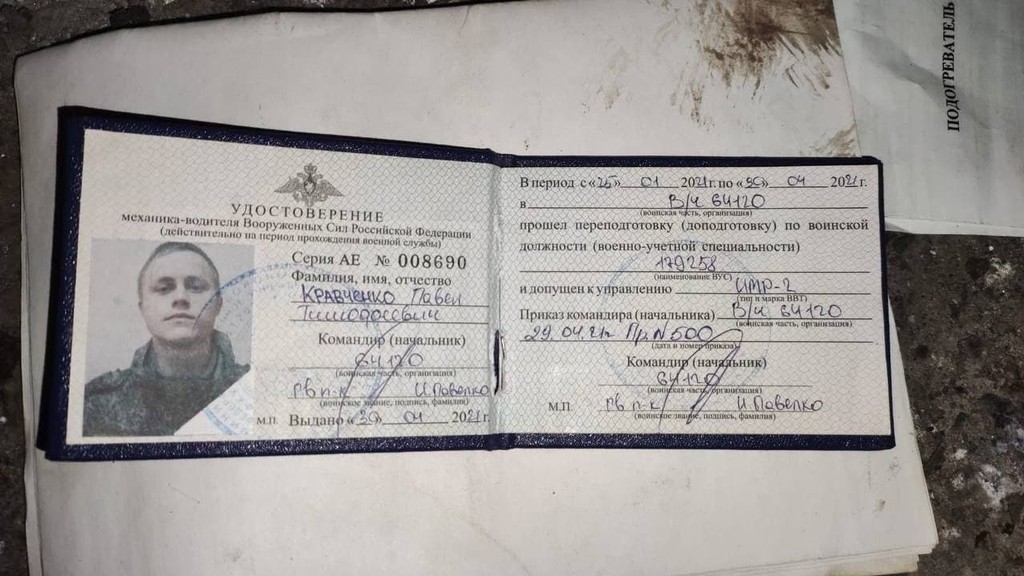 УДОСТОВЕРЕНИЕ
механика-водителя Вооруженных Сил Российской Федерации
(действительно на период прохождения военной службы)
Серия АЕ № 008690
Фамилия, имя, отчество
Кравченко Павел
Командир (начальник)
64120
(воинская часть, организация)
гв п-к И.Павелко
(воинское звание, подпись, фамилия)
М.П. Выдано «30» 04 2021г.
В период с «25» 01 2021г. по «30» 04 2021г.
в В/ч 64120
(воинская часть, организация)
прошел переподготовку (доподготовку) по воинской
должности (военно-учетной специальности)
179258
(наименование ВУС)
и допущен к управлению ИМР-2
(тип и марка ВВТ)
Приказ командира (начальника) В/ч 64120
(воинская часть, организация)
29.04.21г. Пр N500
(дата и номер приказа)
Командир (начальник)
64120
(воинская часть, организация)
М.П. гв п-к И.Павелко
(воинское звание, подпись, фамилия)
ПОДОГРЕВАТЕЛЬ